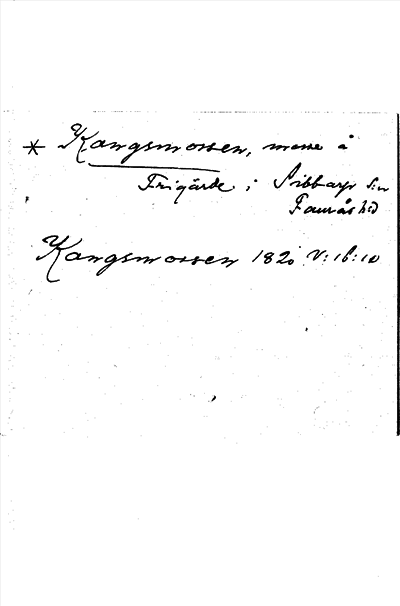 * Kangsmossen, mosse å
Frigärde i Sibbarp s:n
Faurås h:d
Kangsmossen 1820 V:16:10